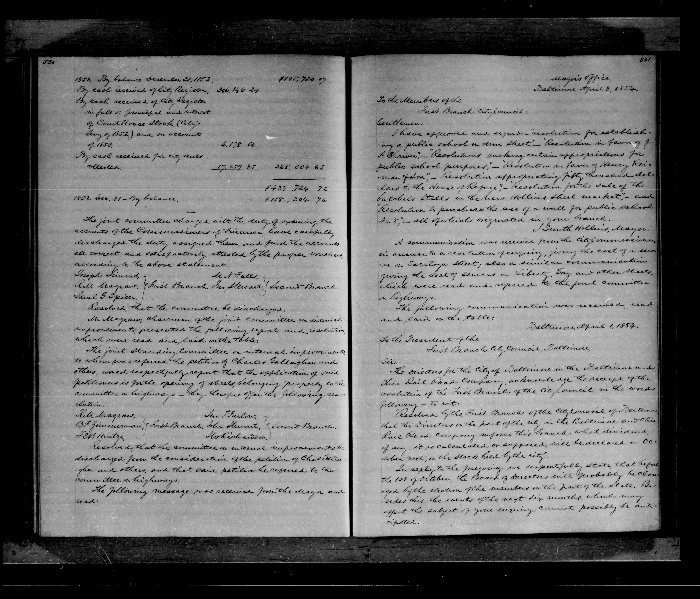 530
1852. By balance December 31, 1852.
By cash received of City Register, 206,146 24
By cash received of City Register
in full of principal and interest
of Court House Stock (City's
of 1852) and on account
of 1853.
By cash received for city rents
collected
1853. Dec. 31 - By balance,
The joint committee charged with the duty of examining the
accounts of the Commissioners of Finance have carefully
discharged the duty assigned them, and find the accounts
all correct and satisfactorily attested by the proper vouchers,
according to the above statement.
First Branch, Second Branch
Resolved, that the committee be discharged.
Mr. Magraw, chairman of the joint committee on internal
improvements, presented the following report and resolution
which were read and laid on the table:
The joint standing committee on internal improvements
to whom was referred the petition of Charles Gallaghan and
others, would respectfully report that the application of said
petitioners is for the opening of streets belonging properly to the
committee on highways - they therefore offer the following resolution.
Robt. Magraw,
First Branch, John Stewart, Second Branch
Resolved, that the committee on internal improvements be
discharged from the consideration of the petition of Chas.
and others, and that said petition be referred to the
committee on highways.
The following message was received from the Mayor and
read:
531
Mayor's Office,
Baltimore April 3, 1854.
To the Members of the
First Branch City Council.
Gentlemen:
I have approved and signed - "resolution for establishing
a public school on Ann street" - "Resolution in favor of
"Resolutions making certain appropriations for
public school purposes," - "Resolution in favor of Henry
- "Resolution appropriating fifty thousand dollars
to the House of Refuge," - "Resolution for the sale of the
butchers stalls in the new Hollins street market," - and
Resolution to purchase the use of a well for public school
No. 8," - all of which originated in your branch.
J. Smith Hollins, Mayor.
A communication was received from the City Commissioners
in answer to a resolution of enquiry, giving the cost of a sewer
on Saratoga street, also a similar communication
giving the cost of sewers on Liberty, Gay and other streets,
which were read and referred to the joint committee
on highways.
The following communication was received, read
and laid on the table:
Baltimore, April 1, 1854.
To the President of the
First Branch City Council, Baltimore,
Sir:
The directors for the City of Baltimore in the Baltimore and
Ohio Rail Road Company, acknowledge the receipt of the
resolution of the First Branch of the City Council in the words
following - to wit:
"Resolved by the First Branch of the City Council of Baltimore
that the Directors on the part of the city, in the Baltimore and Ohio
Rail Road Company inform this Branch what dividend,
if any, it is calculated or supposed, will be declared in October
next, on the stock held by the city."
In reply to the foregoing we respectfully state that before
the 1st of October the Board of Directors will probably be changed
by the election of the members on the part of the State. Besides
this the events of the next six months, which may
affect the subject of your enquiry cannot possibly be anticipated.